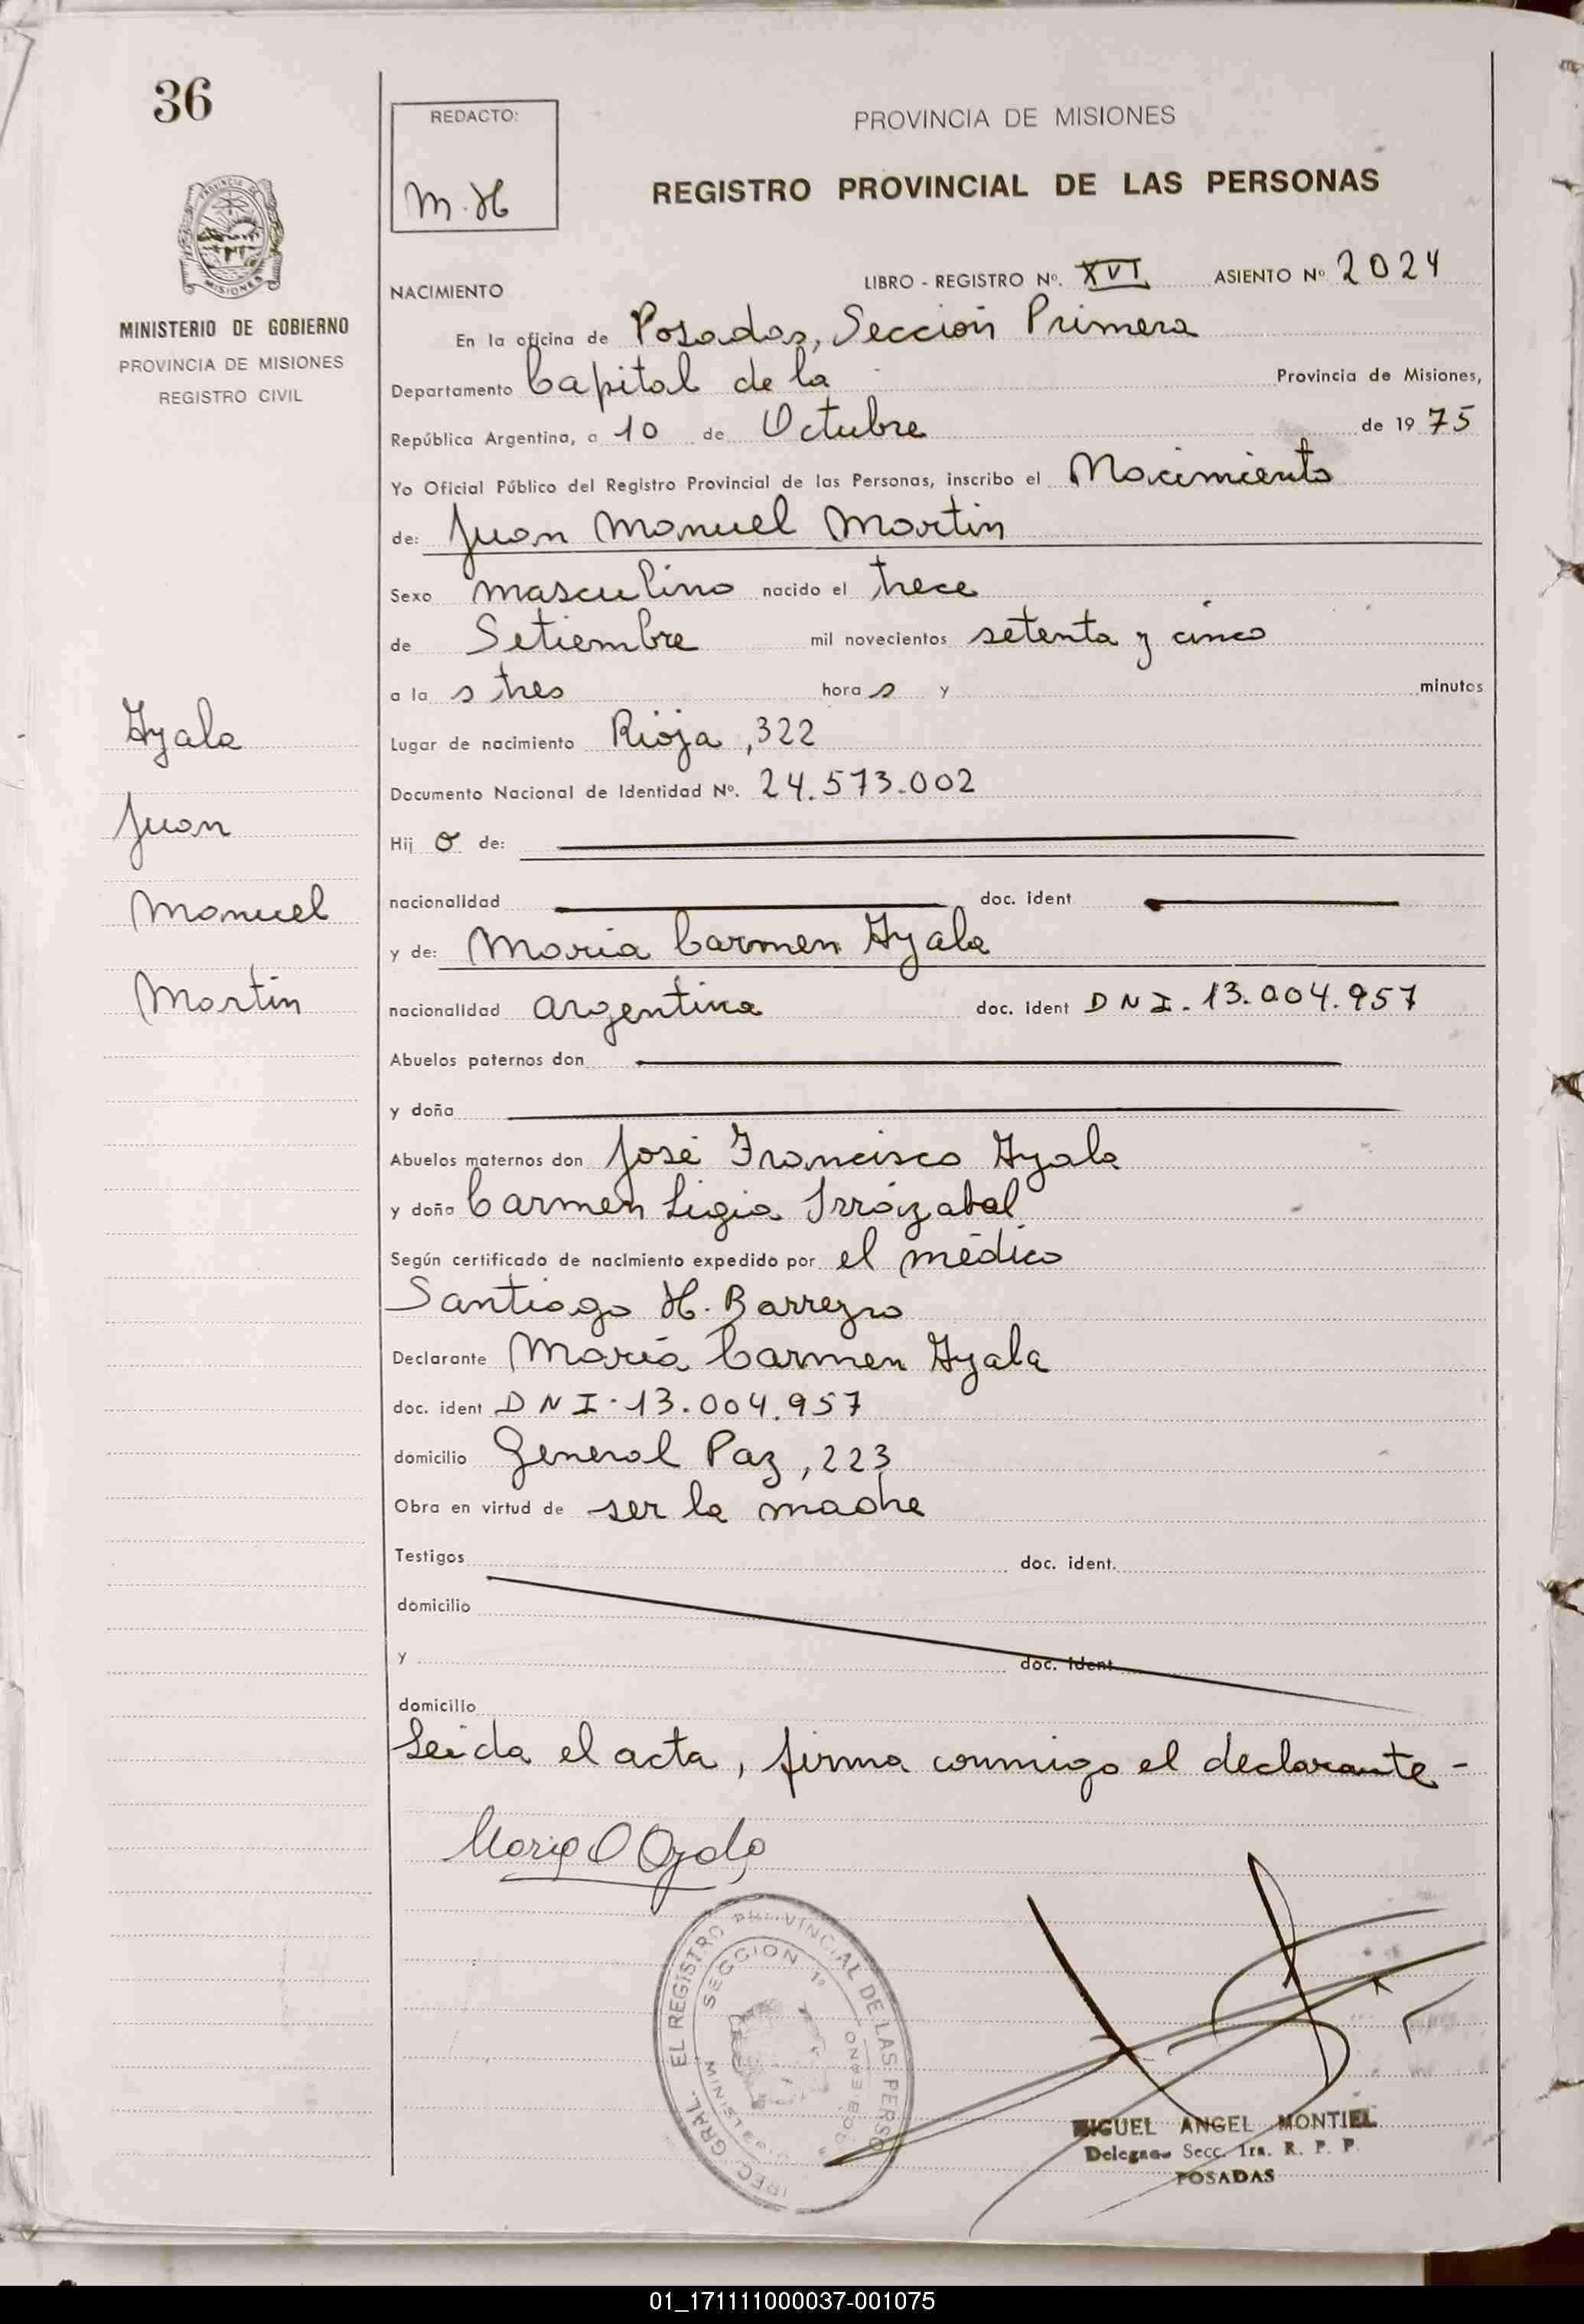 36
REDACTO:
M.H
PROVINCIA DE MISIONES
REGISTRO PROVINCIAL DE LAS PERSONAS
MISIONES
MINISTERIO DE GOBIERNO
PROVINCIA DE MISIONES
REGISTRO CIVIL
NACIMIENTO
LIBRO - REGISTRO Nº. XVI ASIENTO Nº 2024
En la oficina de Posadas, Sección Primera
Departamento Capital de la Provincia de Misiones,
República Argentina, a 10 de Octubre de 1975
Yo Oficial Público del Registro Provincial de las Personas, inscribo el Nacimiento
de: Juan Manuel Martin
Sexo masculino nacido el trece
de Setiembre mil novecientos setenta y cinco
a la s tres hora s y minutos
Lugar de nacimiento Rioja, 322
Documento Nacional de Identidad Nº. 24.573.002
Hij o de:
nacionalidad doc. ident
y de: Maria Carmen Ayala
nacionalidad argentina doc. ident DNI. 13.004.957
Abuelos paternos don
y doña
Abuelos maternos don José Francisco Ayala
y doña Carmen Ligia Irrázabal
Según certificado de nacimiento expedido por el médico
Santiago H. Barreyro
Declarante María Carmen Ayala
doc. ident DNI. 13.004.957
domicilio General Paz, 223
Obra en virtud de ser la madre
Testigos doc. ident.
domicilio
y doc. ident
domicilio
Leída el acta, firma conmigo el declarante -
Ayala
Juan
Manuel
Martin
EL REGISTRO PROVINCIAL DE LAS PERSO
SECCION 1ª
MINISTERIO DE GOBIERNO
GRAL.
MIGUEL ANGEL MONTIEL
Delegado Secc. 1ra. R. P. P.
POSADAS
01_171111000037-001075